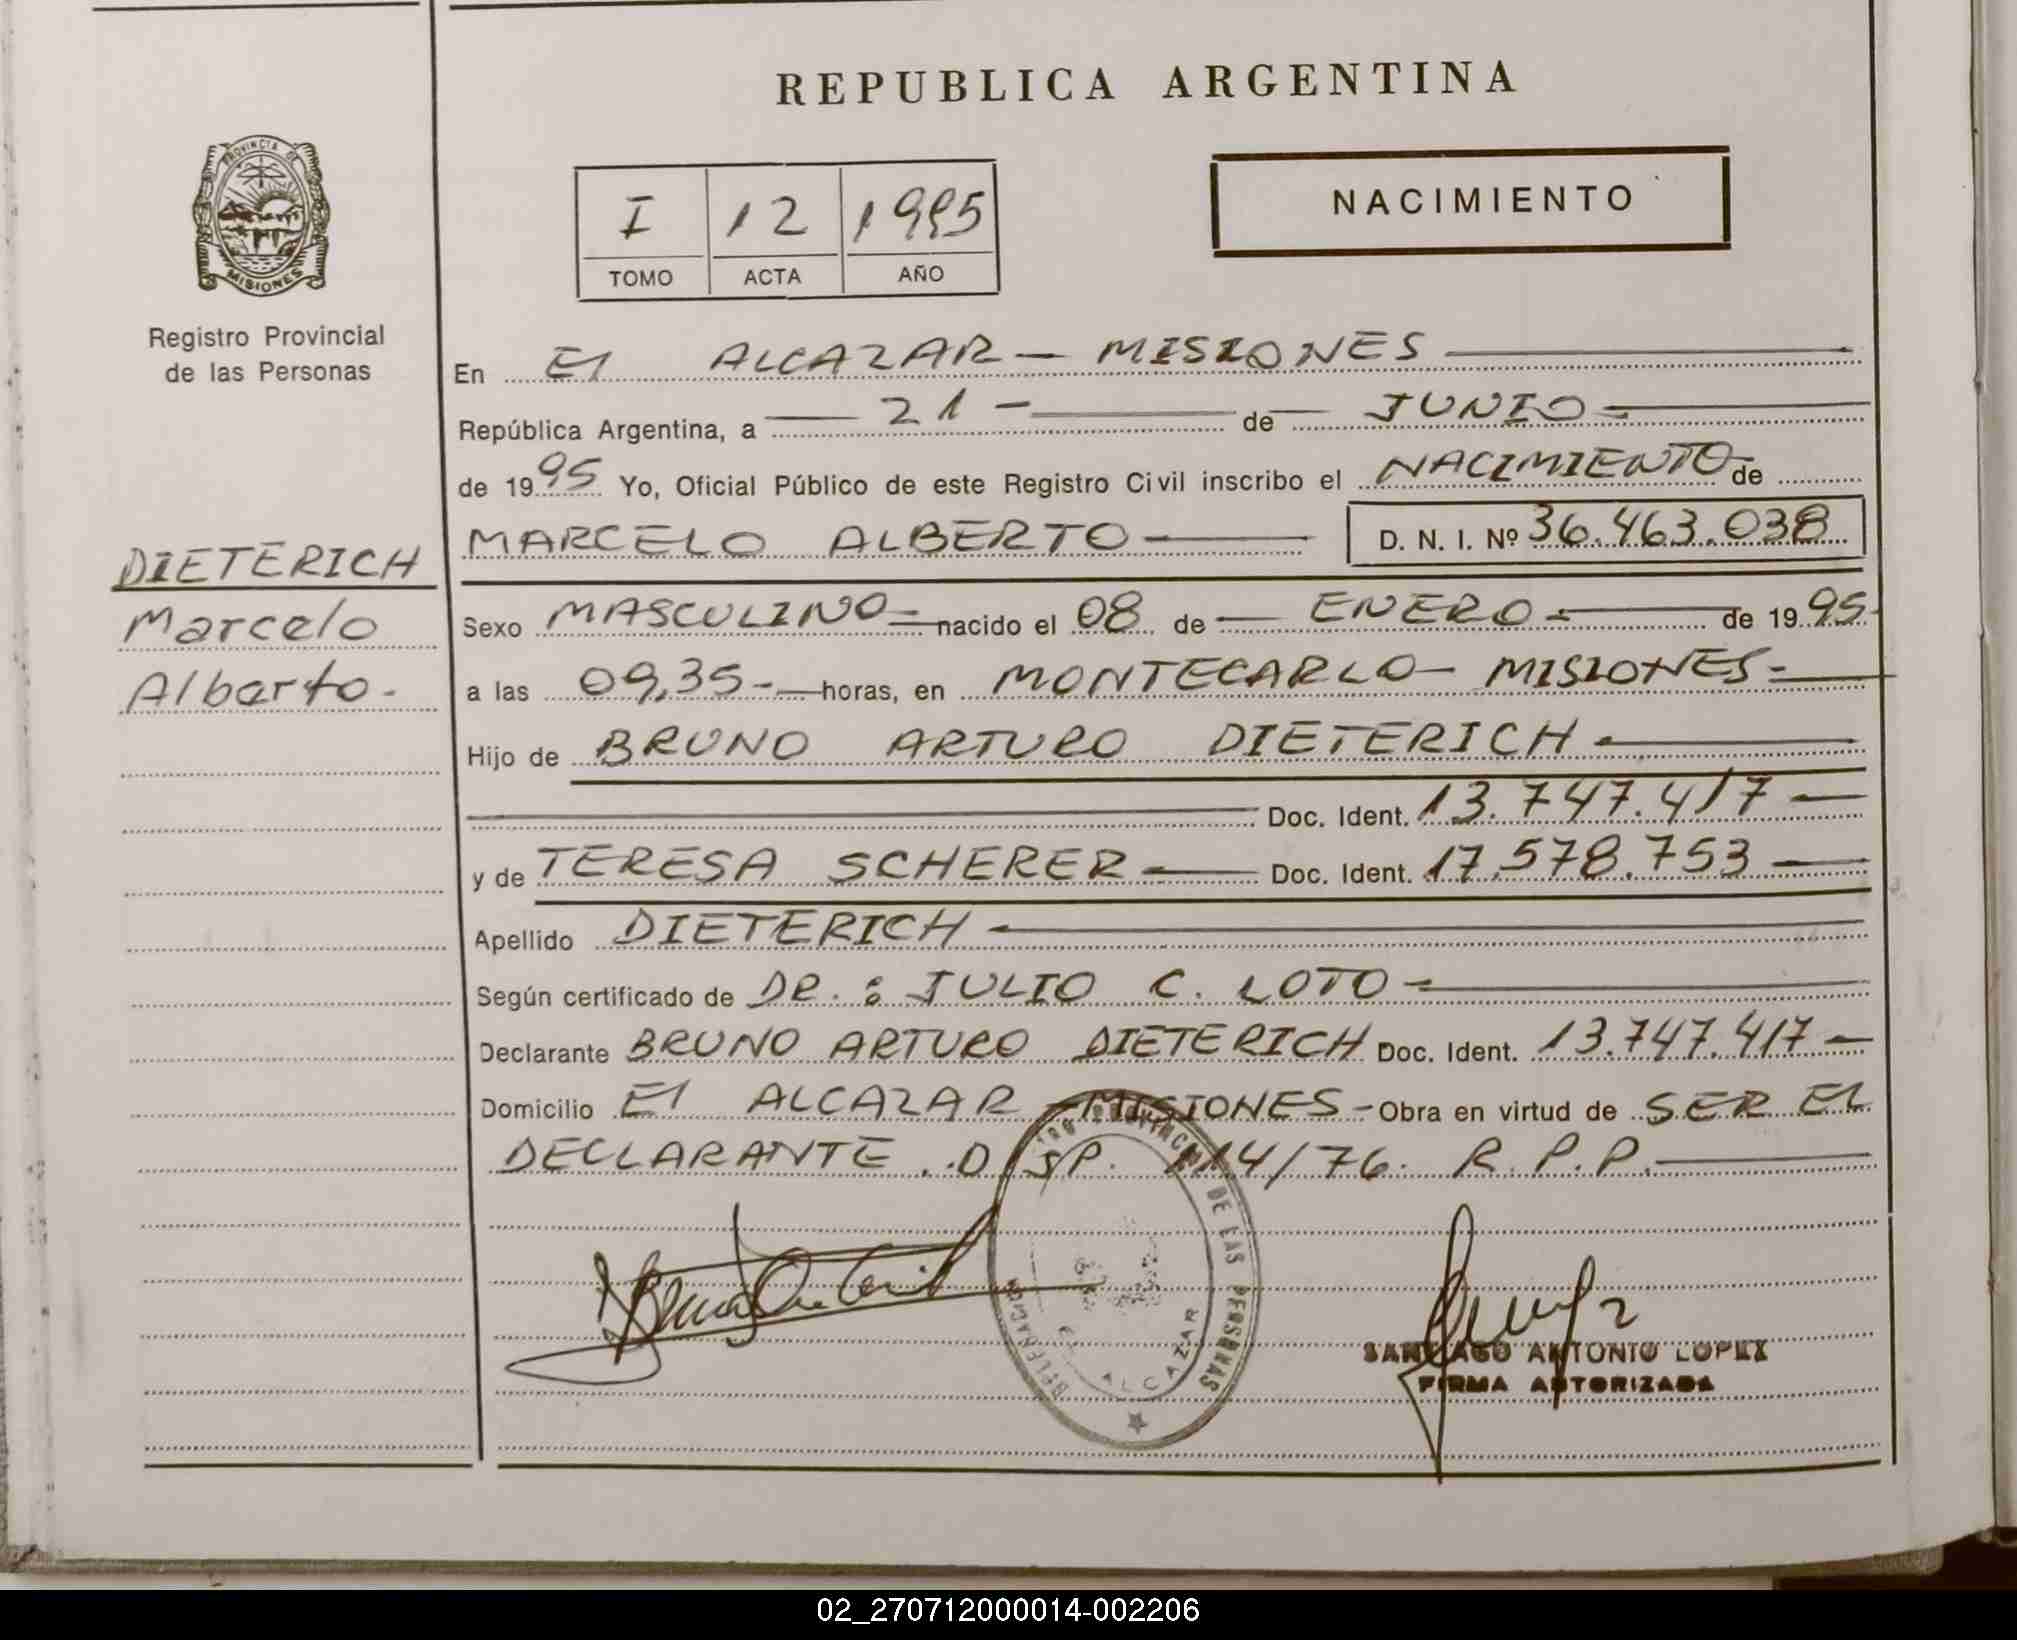 REPUBLICA ARGENTINA
PROVINCIA DE
MISIONES
Registro Provincial
de las Personas
I 12 1995
TOMO ACTA AÑO
NACIMIENTO
En El ALCAZAR - MISIONES
República Argentina, a 21 - de JUNIO
de 1995 Yo, Oficial Público de este Registro Civil inscribo el NACIMIENTO de
MARCELO ALBERTO D. N. I. Nº 36.463.038
DIETERICH
Marcelo
Alberto.
Sexo MASCULINO nacido el 08 de ENERO de 1995
a las 09,35- horas, en MONTECARLO - MISIONES
Hijo de BRUNO ARTURO DIETERICH
Doc. Ident. 13.747.417
y de TERESA SCHERER Doc. Ident. 17.578.753
Apellido DIETERICH
Según certificado de DR.: JULIO C. LOTO
Declarante BRUNO ARTURO DIETERICH Doc. Ident. 13.747.417
Domicilio El ALCAZAR - MISIONES - Obra en virtud de SER El
DECLARANTE. DISP. 114/76. R.P.P.
PROVINCIAL DE LAS PERSONAS
ALCAZAR
SANTIAGO ANTONIO LOPEZ
FIRMA AUTORIZADA
02_270712000014-002206